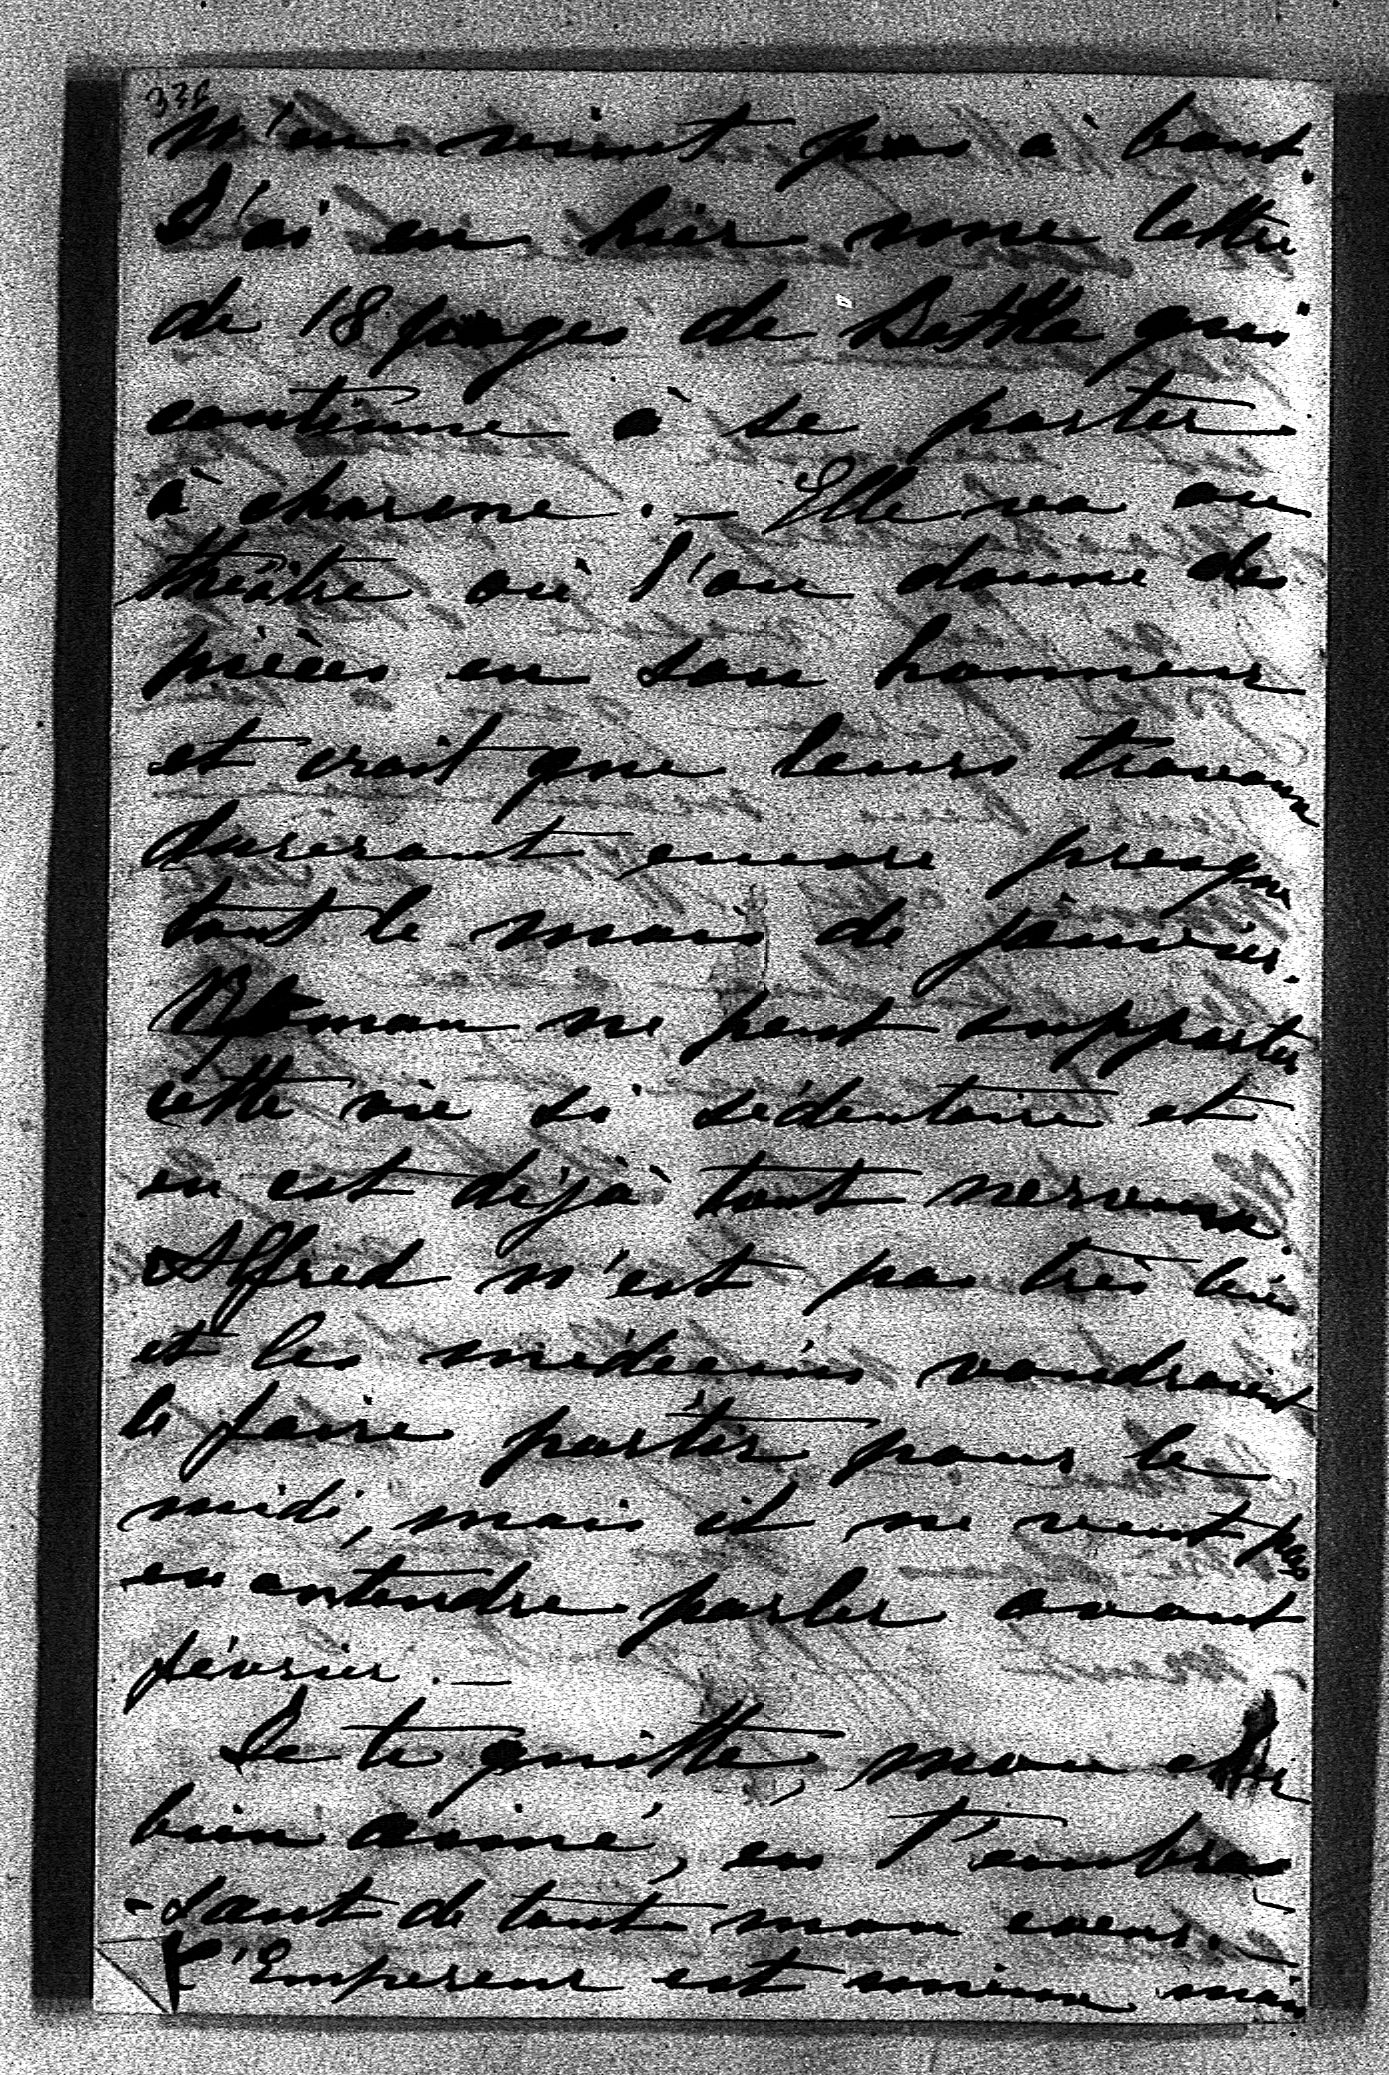 n'en vient pas à bout.
J'ai eu hier une lettre
de 18 pages de Bettka qui
continue à se porter
à charme. — Elle va au
théâtre où l'on donne des
pièces en son honneur
et croit que leurs travaux
dureront encore presque
tout le mois de janvier.
Roman ne peut supporter
cette vie si sédentaire et
en est déjà tout nerveux.
Alfred n'est pas très bien
et les médecins voudraient
le faire partir pour le
midi, mais il ne veut pas
en entendre parler avant
février. —
Je te quitte, mon cher
bien aimé, en t'embras
-sant de tout mon coeur. —
L'Empereur est mieux mais